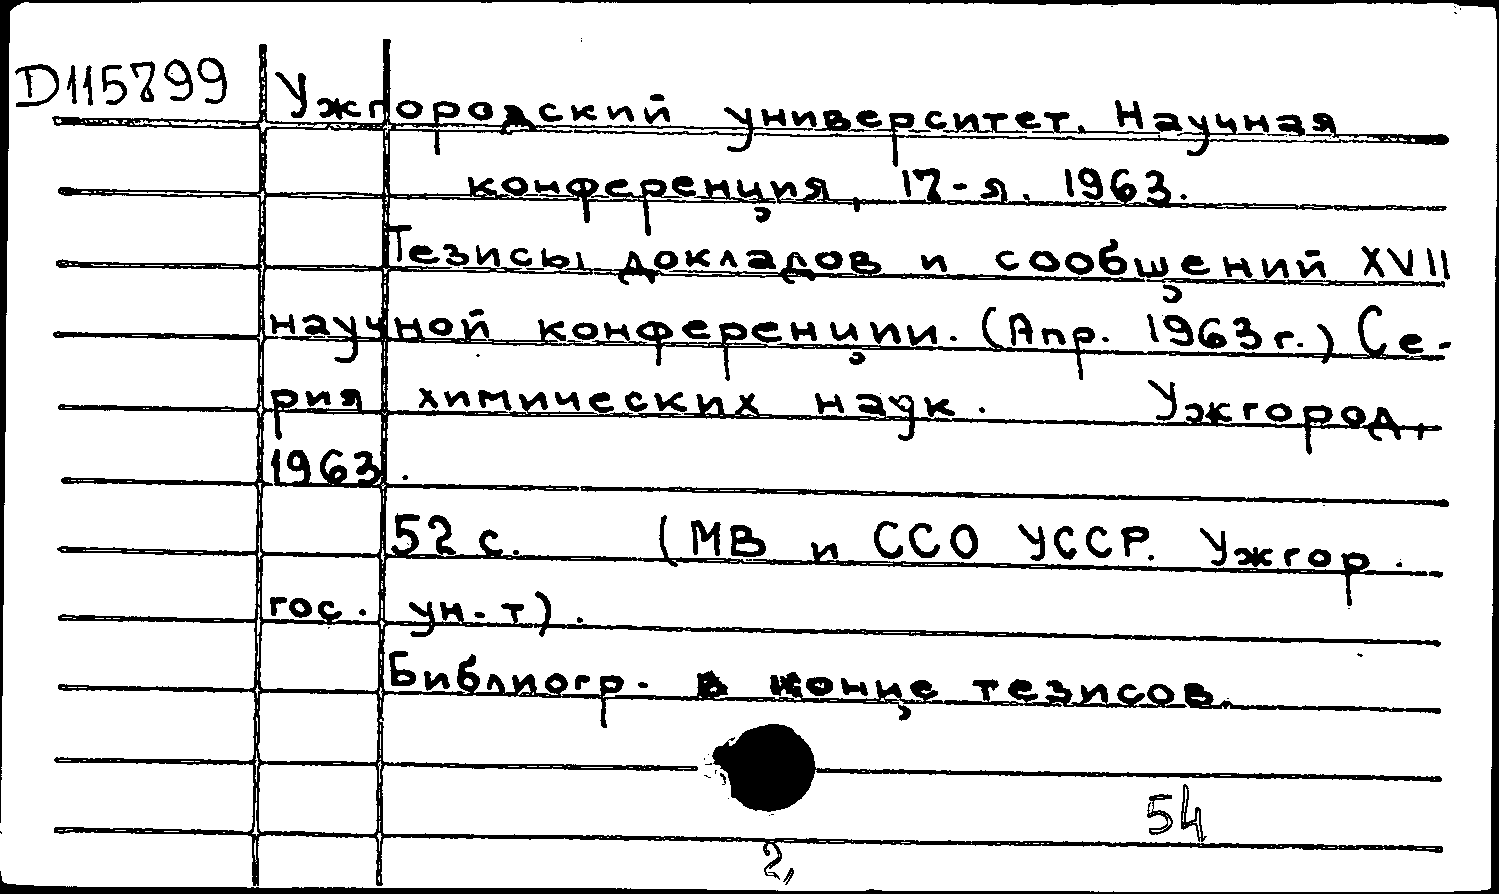 D115799 Ужгородский университет. Научная
конференция, 17-я. 1963.
Тезисы докладов и сообщений XVII
научной конференции. (Апр. 1963 г.) Се-
рия химических наук. Ужгород,
1963.
52 с. (МВ и ССО УССР. Ужгор.
гос. ун-т).
Библиогр. в конце тезисов.
54
2,